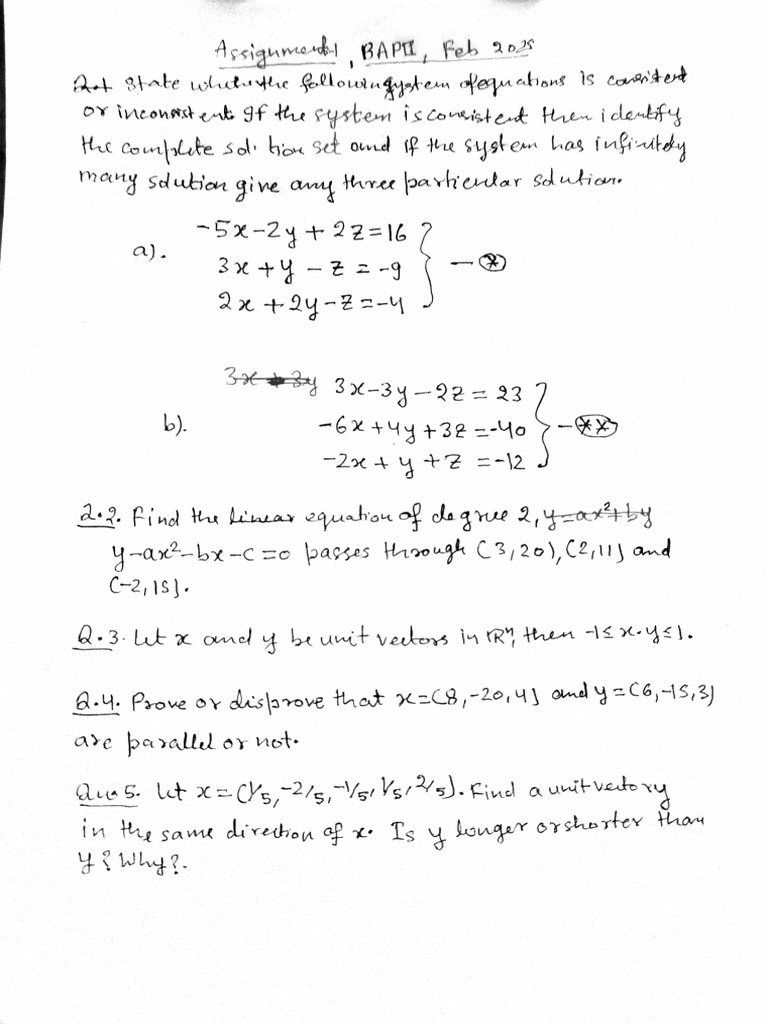 Assignment-1, BAPII, Feb 2025
Q.1 State whether the following system of equations is consistent
or inconsistent. If the system is consistent then identify
the complete solution set and if the system has infinitely
many solution give any three particular solution.
-5x-2y+2z=16
a). 3x+y-z=-9 } - ⊛
2x+2y-z=-4
3x+3y 3x-3y-2z=23
b). -6x+4y+3z=-40 } - (**)
-2x+y+z=-12
Q.2. Find the linear equation of degree 2, y=ax²+by
y-ax²-bx-c=0 passes through (3,20), (2,11) and
(-2,15).
Q.3. Let x and y be unit vectors in ℝⁿ, then -1≤x·y≤1.
Q.4. Prove or disprove that x=(8,-20,4) and y=(6,-15,3)
are parallel or not.
Que 5. Let x=(1/5,-2/5,-1/5,1/5,2/5). Find a unit vector y
in the same direction of x. Is y longer or shorter than
y? Why?.